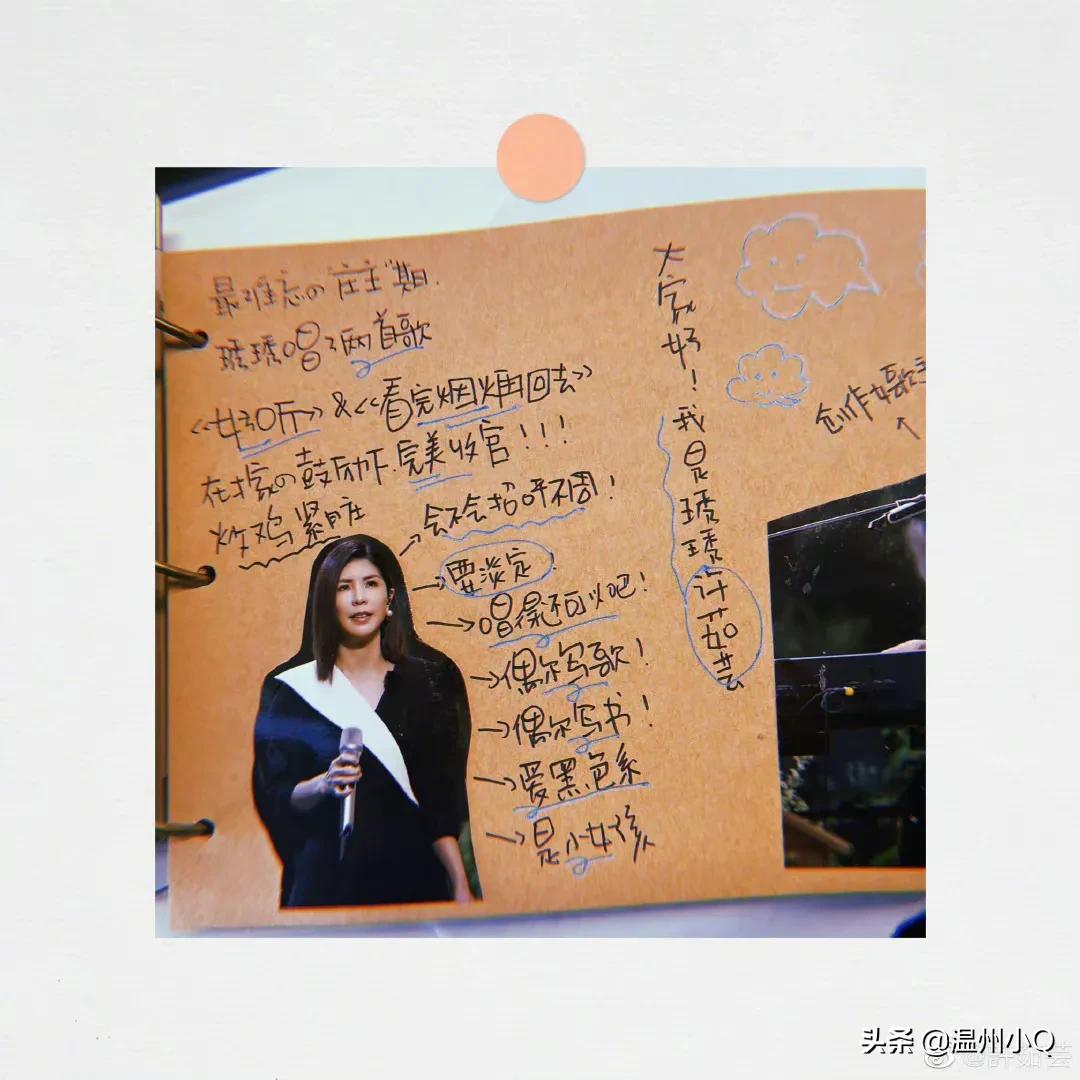 最难忘の"庄主"期.
琇琇唱了两首歌
<<好听>> & <<看完烟火再回去>>
在大家の鼓励下.完美收官!!!
炒鸡紧脏
→会不会招呼不周!
→要淡定!
→唱得还可以吧!
→偶尔写歌!
→偶尔写书!
→爱黑色系
→是小女孩
大家好!我是琇琇许茹芸
创作女歌
头条 @温州小Q
@許茹芸